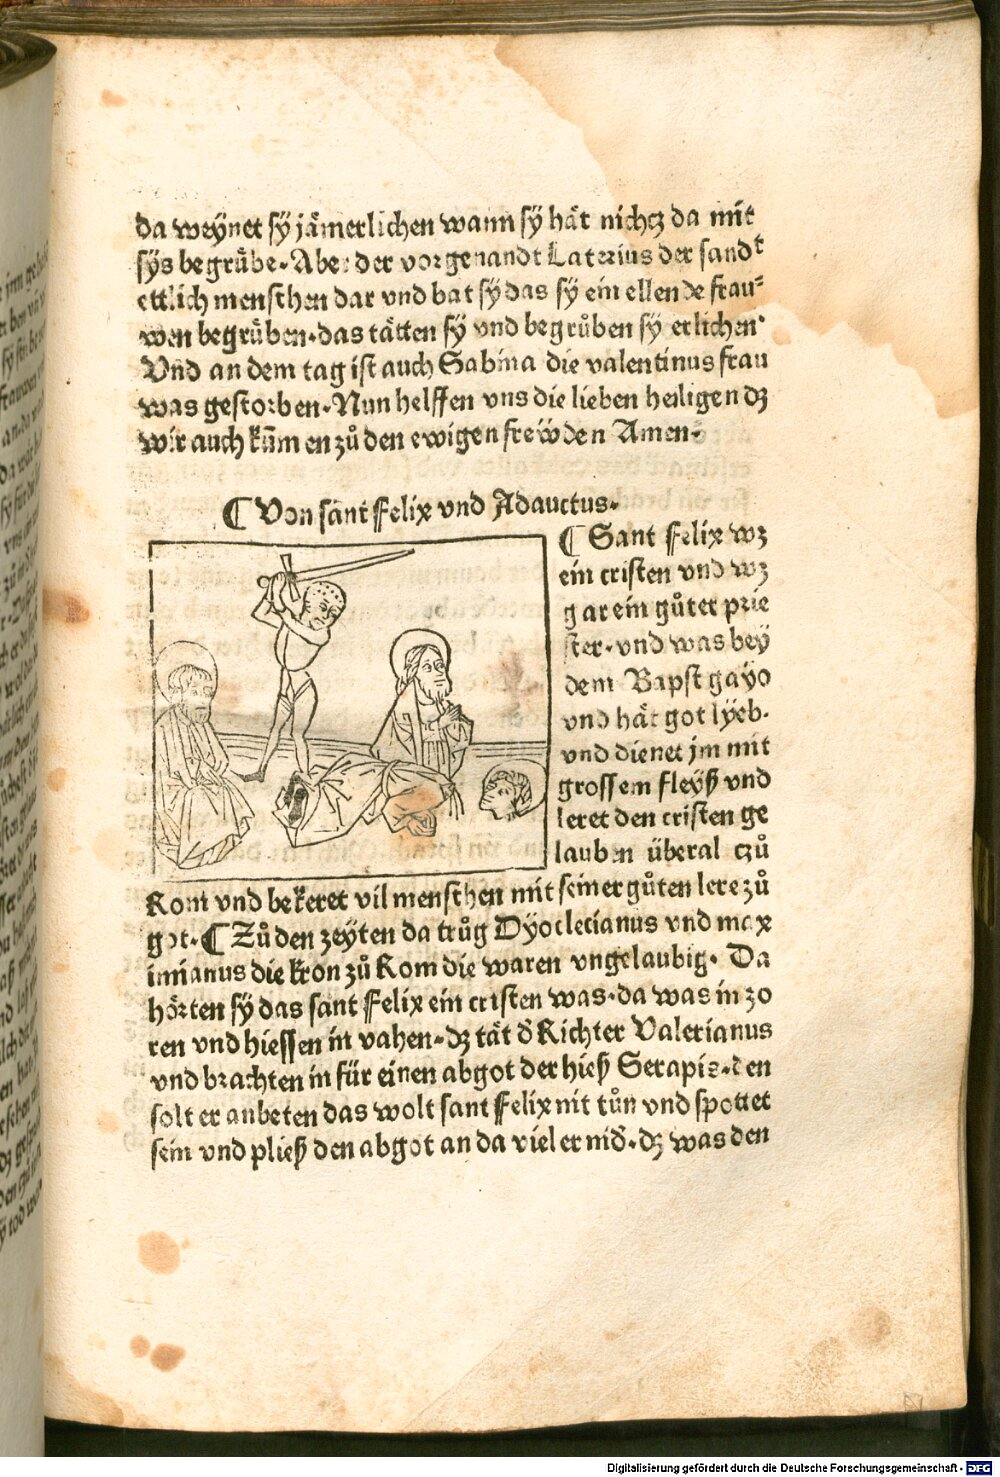 da weÿnet sÿ jämerlichen wann sÿ hät nichcz da mit
sÿs begrübe. Aber der vorgenandt Laterius der sandt
ettlich menschen dar vnd bat sÿ das sÿ ein ellende frau⸗
wen begrüben. das tätten sÿ vnd begrüben sÿ erlichen.
Vnd an dem tag ist auch Sabina die valentinus frau
was gestorben. Nun helffen vns die lieben heiligen dz
wir auch kümen zů den ewigen freẅden Amen.
¶ Von sant Felix vnd Adauctus.
¶ Sant Felix wz
ein cristen vnd wz
gar ein gůter prie
ster. vnd was beÿ
dem Bapst gayo
vnd hät got lÿeb.
vnd dienet jm mit
grossem fleÿß vnd
leret den cristen ge
lauben überal czů
Rom vnd bekeret vil menschen mit seiner gůten lere zů
got. ¶ Zů den zeÿten da trůg Dÿocletianus vnd max
imianus die kron zů Rom die waren vngelaubig. Da
hörten sÿ das sant Felix ein cristen was. da was in zo
ren vnd hiessen in vahen. dz tät d̕ Richter Valerianus
vnd brachten in für einen abgot der hieß Serapis. den
solt er anbeten das wolt sant Felix nit tůn vnd spottet
sein vnd pließ den abgot an da viel er nid̕. dz was den
Digitalisierung gefördert durch die Deutsche Forschungsgemeinschaft - DFG